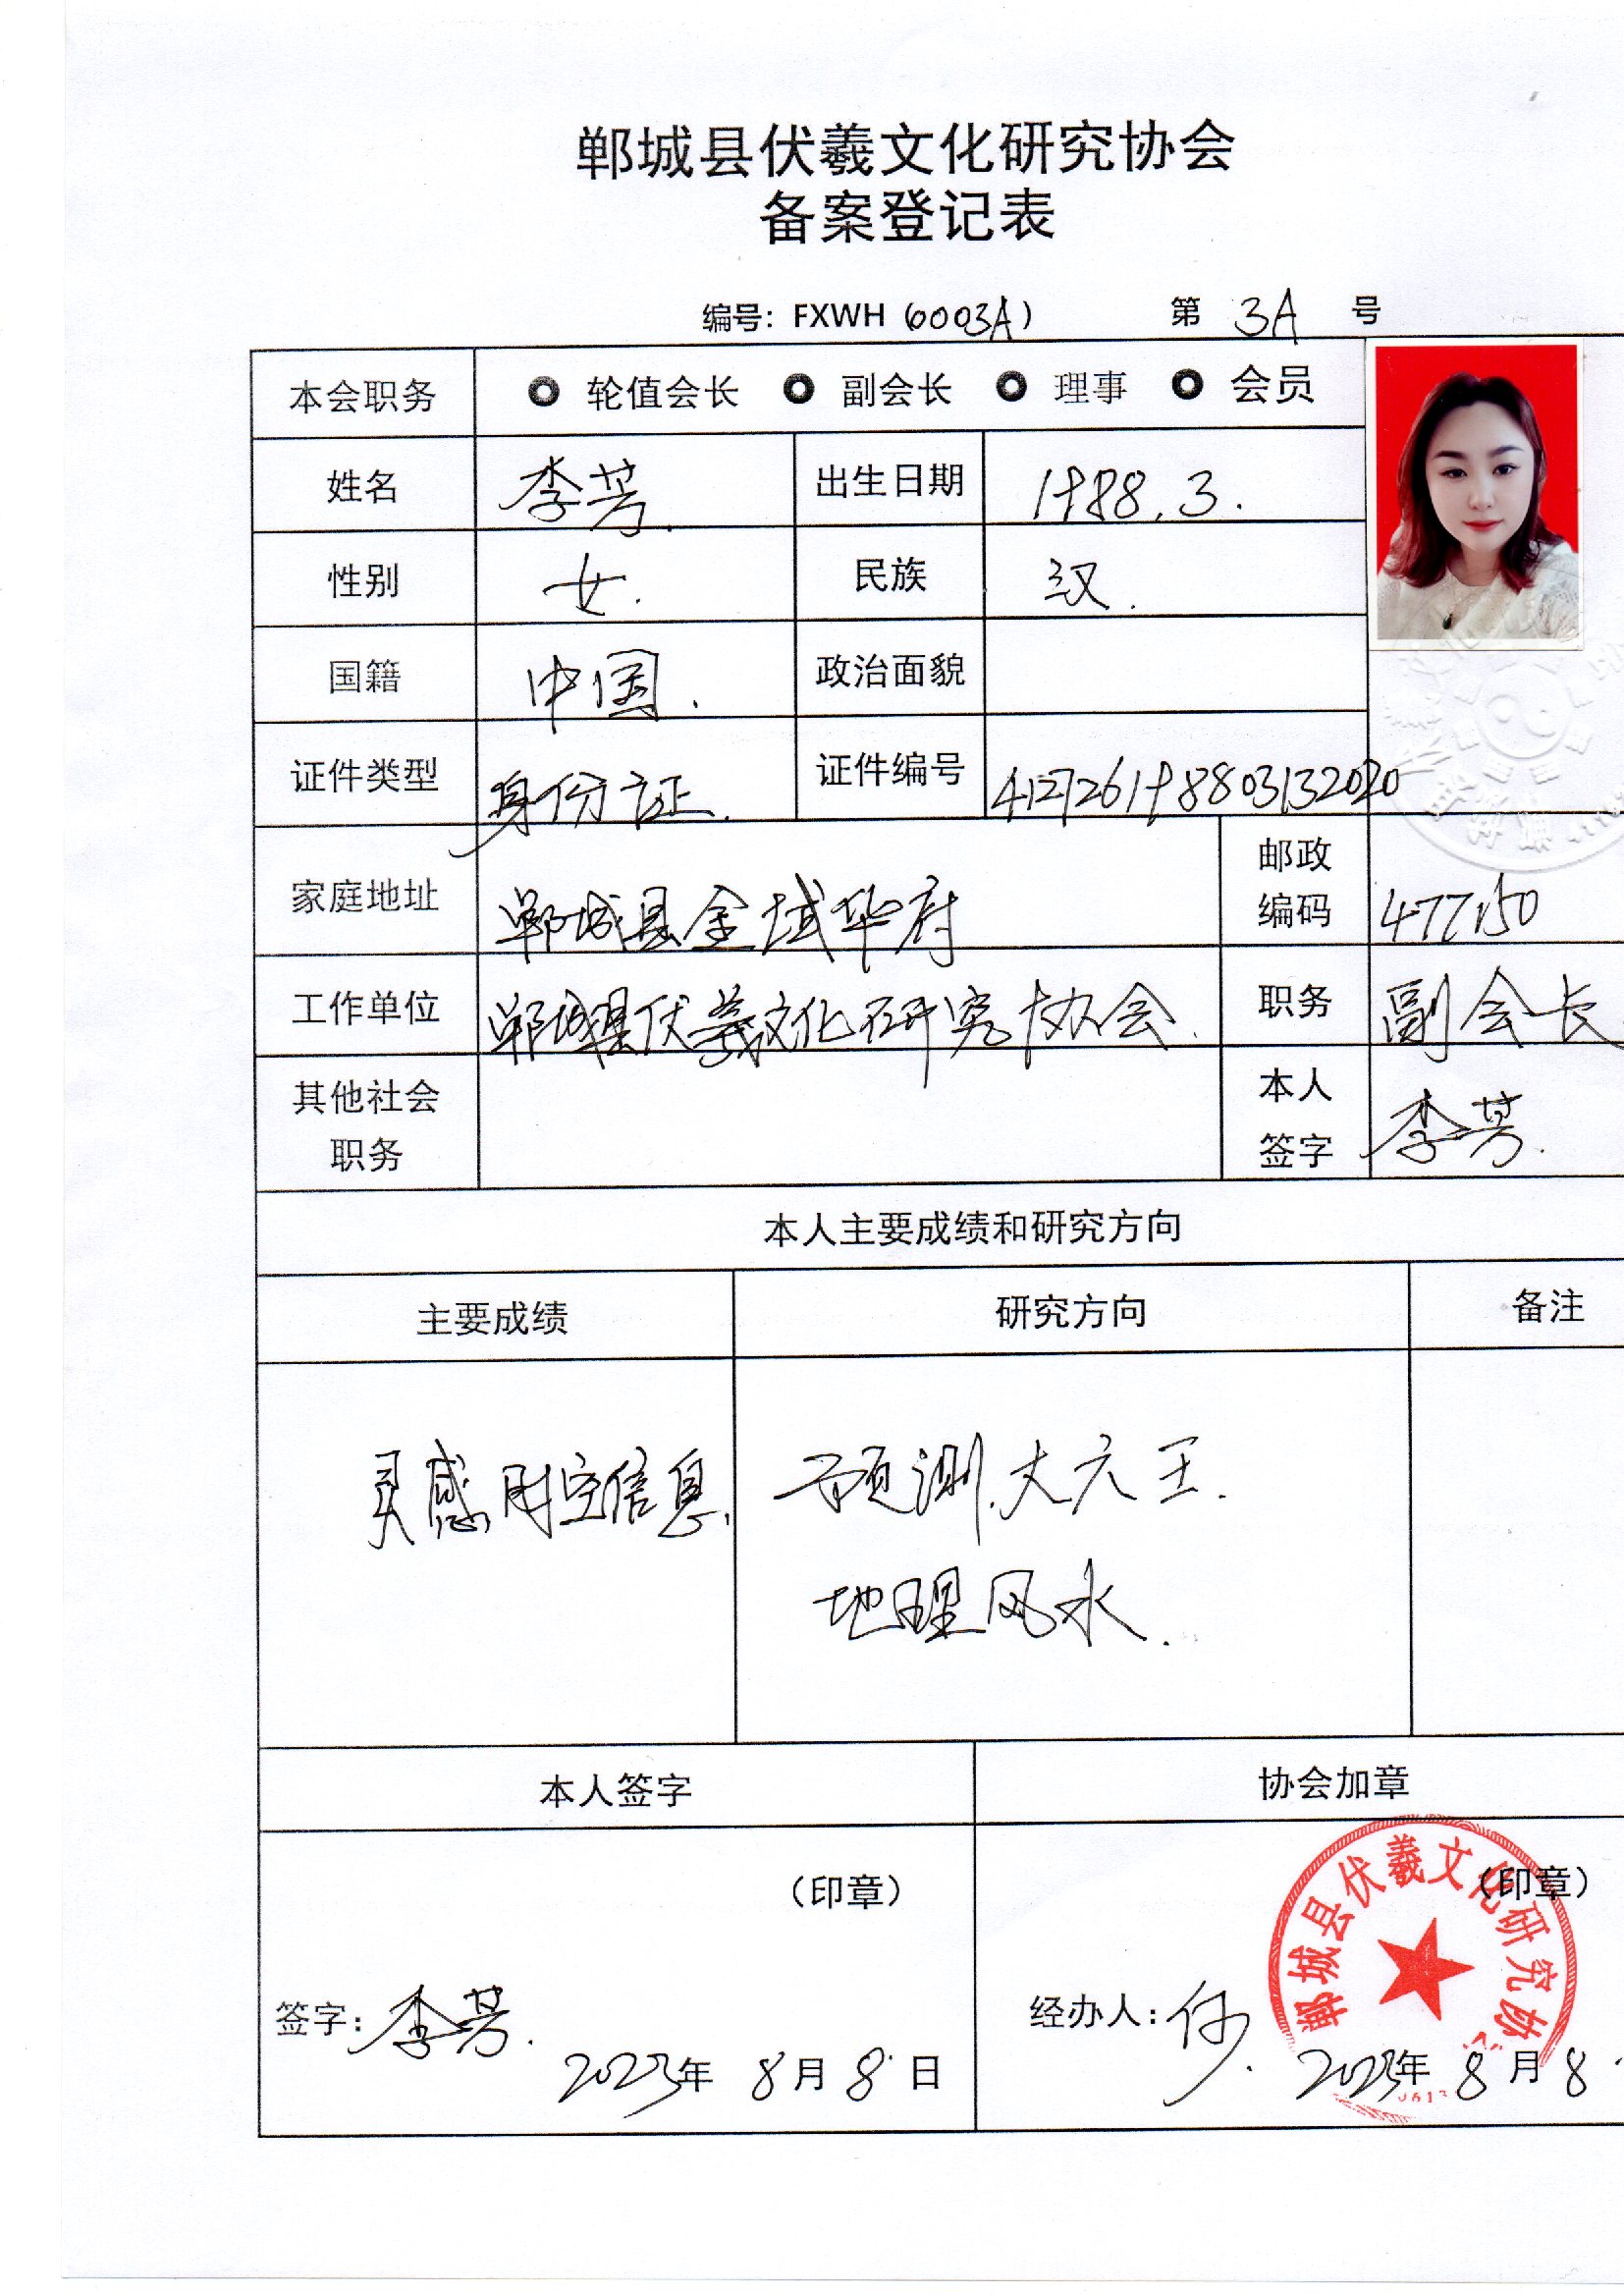 郸城县伏羲文化研究协会
备案登记表
编号：FXWH（6003A） 第 3A 号
本会职务 轮值会长 副会长 理事 会员
姓名 李芳. 出生日期 1988.3.
性别 女. 民族 汉.
国籍 中国. 政治面貌
证件类型 身份证. 证件编号 412726198803132020
家庭地址 郸城县金域华府 邮政编码 477150
工作单位 郸城县伏羲文化研究协会. 职务 副会长
其他社会职务 本人签字 李芳.
本人主要成绩和研究方向
主要成绩 研究方向 备注
灵感时空信息. 预测.大六壬.
地理风水.
本人签字 协会加章
（印章） （印章）
郸城县伏羲文化研究协
签字：李芳. 经办人：
2023年 8月8日 2023年 8月8